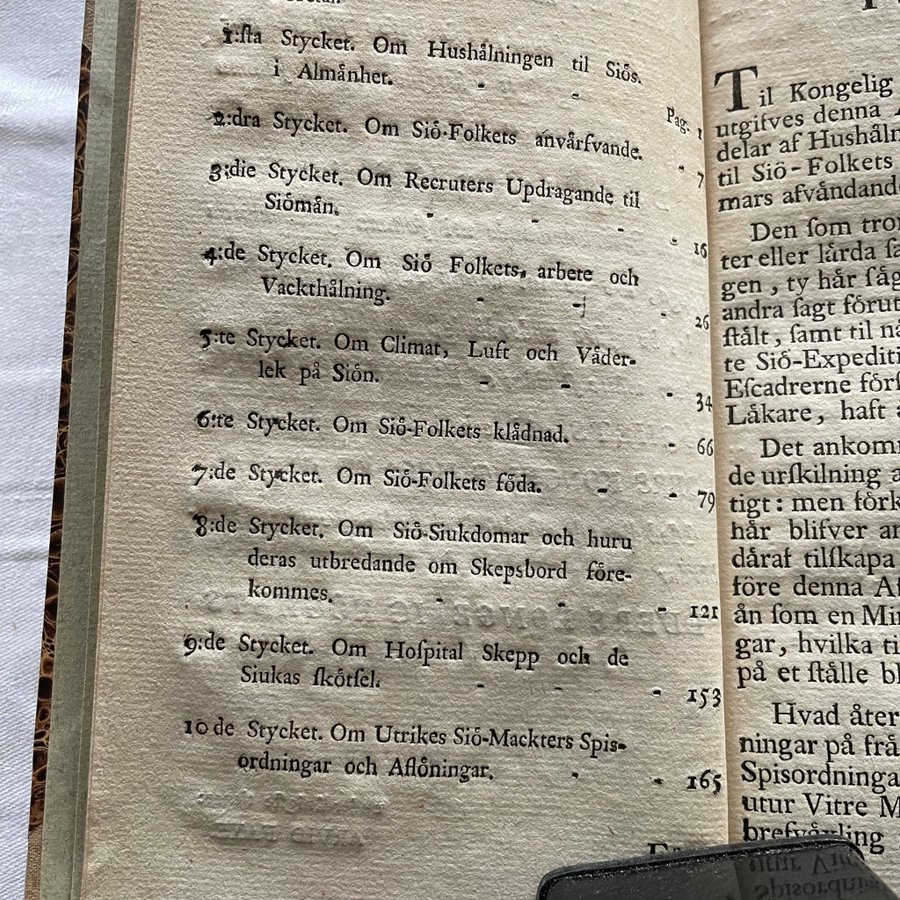 1:ſta Stycket. Om Hushålningen til Siös.
i Almånhet. - - Pag. 1
2:dra Stycket. Om Siö-Folkets anvårfvande. - 7
3:die Stycket. Om Recruters Updragande til
Siömån. - - - - 16
4:de Stycket. Om Siö Folkets, arbete och
Vackthålning. - - - 26
5:te Stycket. Om Climat, Luft och Våder-
lek på Siön. - - - 34
6:te Stycket. Om Siö-Folkets klådnad. - 66
7:de Stycket. Om Siö-Folkets föda. - - 79
8:de Stycket. Om Siö-Siukdomar och huru
deras utbredande om Skepsbord före-
kommes. - - - 121
9:de Stycket. Om Hoſpital Skepp och de
Siukas ſkötſel. - - - 153
10 de Stycket. Om Utrikes Siö-Mackters Spis-
ordningar och Aflöningar. - - 165
Til Kongelig
utgifves denna
delar af Hushåln
til Siö-Folkets
mars afvåndand
Den ſom tror
ter eller lårda ſå
gen, ty hår ſåg
andra ſagt förut
ſtålt, ſamt til nå
te Siö-Expediti
Eſcadrerne förſ
Låkare, haft
Det ankomm
de urſkilning a
tigt: men förk
hår blifver an
dåraf tilſkapa
före denna Af
ån ſom en Min
gar, hvilka ti
på et ſtålle bl
Hvad åter
ningar på frå
Spisordninga
utur Vitre M
brefvåxling